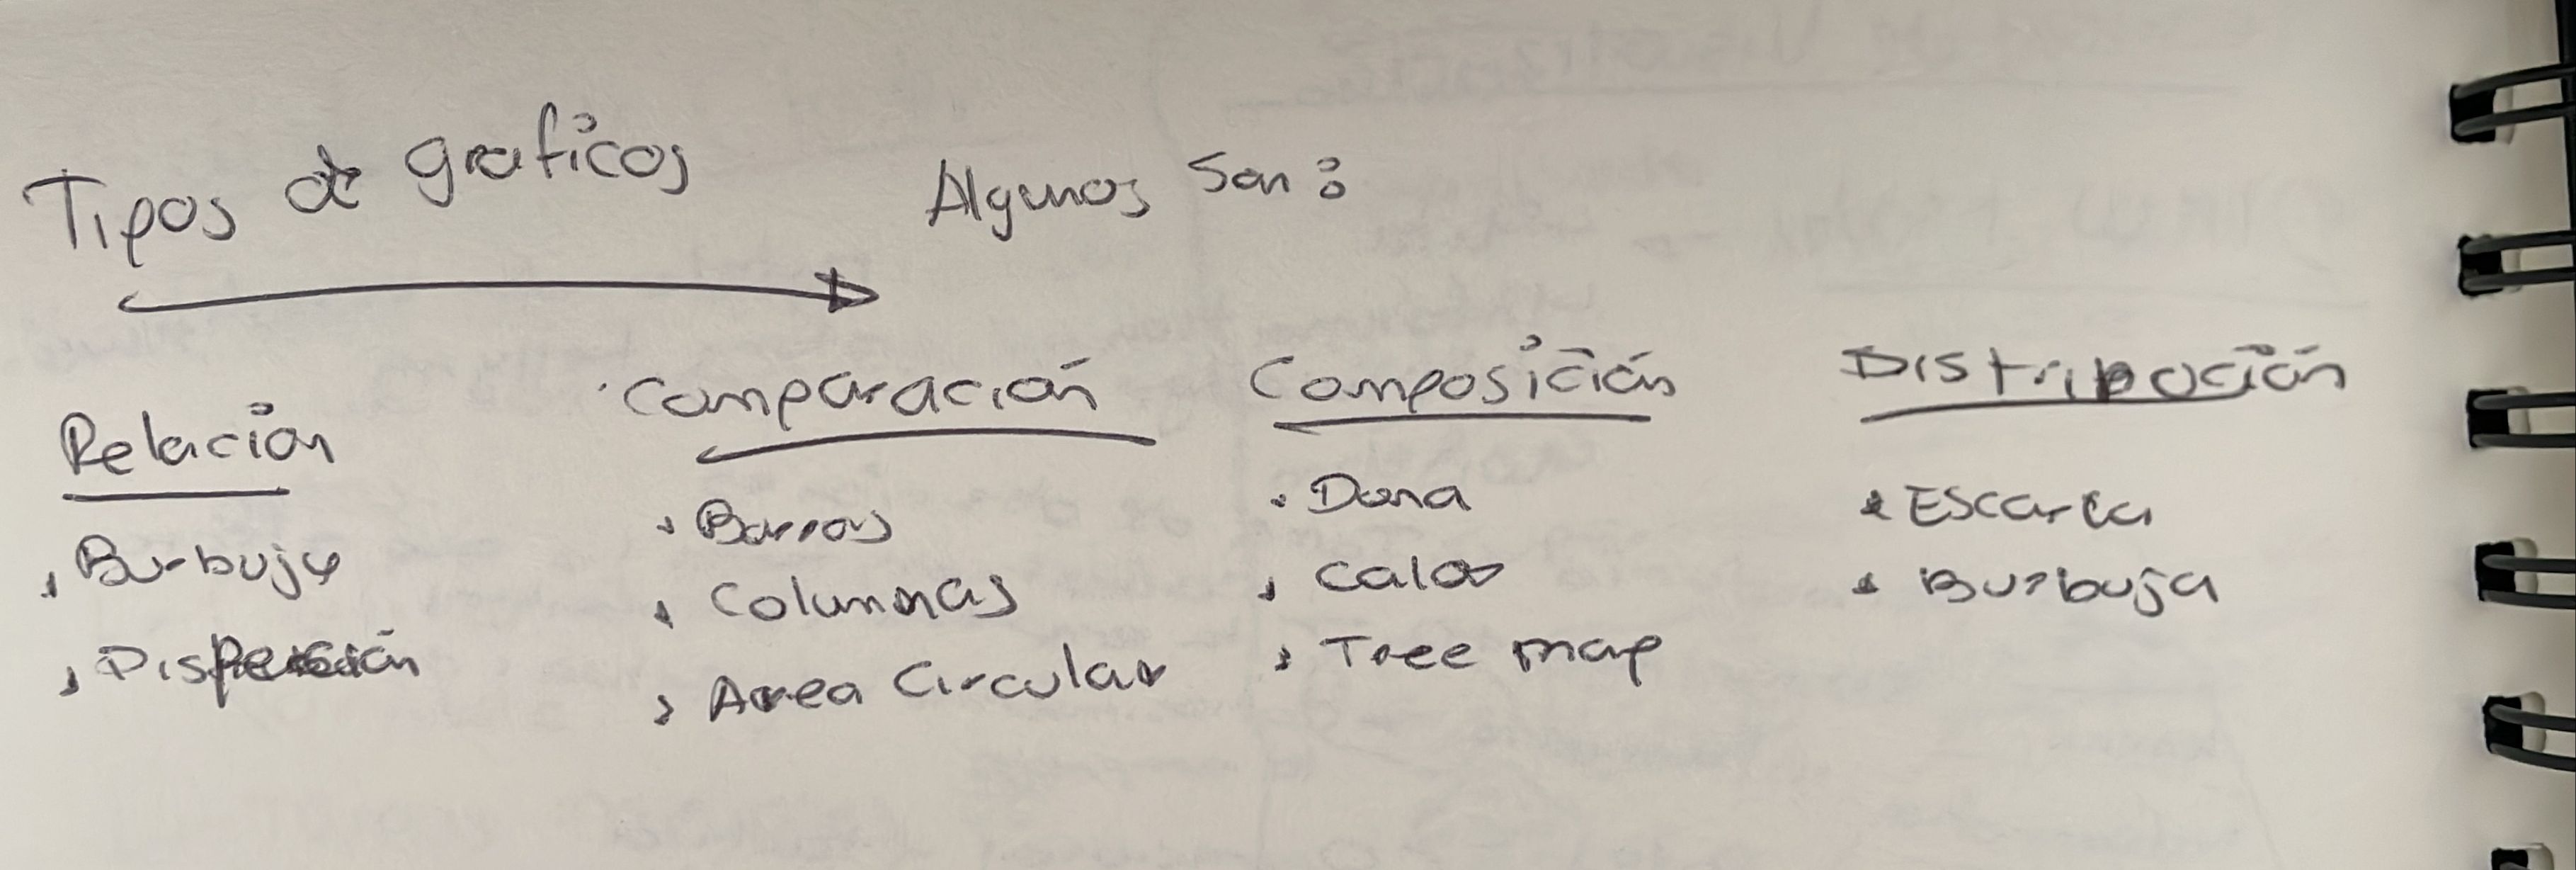 Tipos de graficos
Algunos Son:
Relación
. Burbuja
. Dispersión
Comparación
. Barras
. Columnas
. Area Circular
Composición
. Dona
. Calor
. Tree map
Distribución
. Burbuja